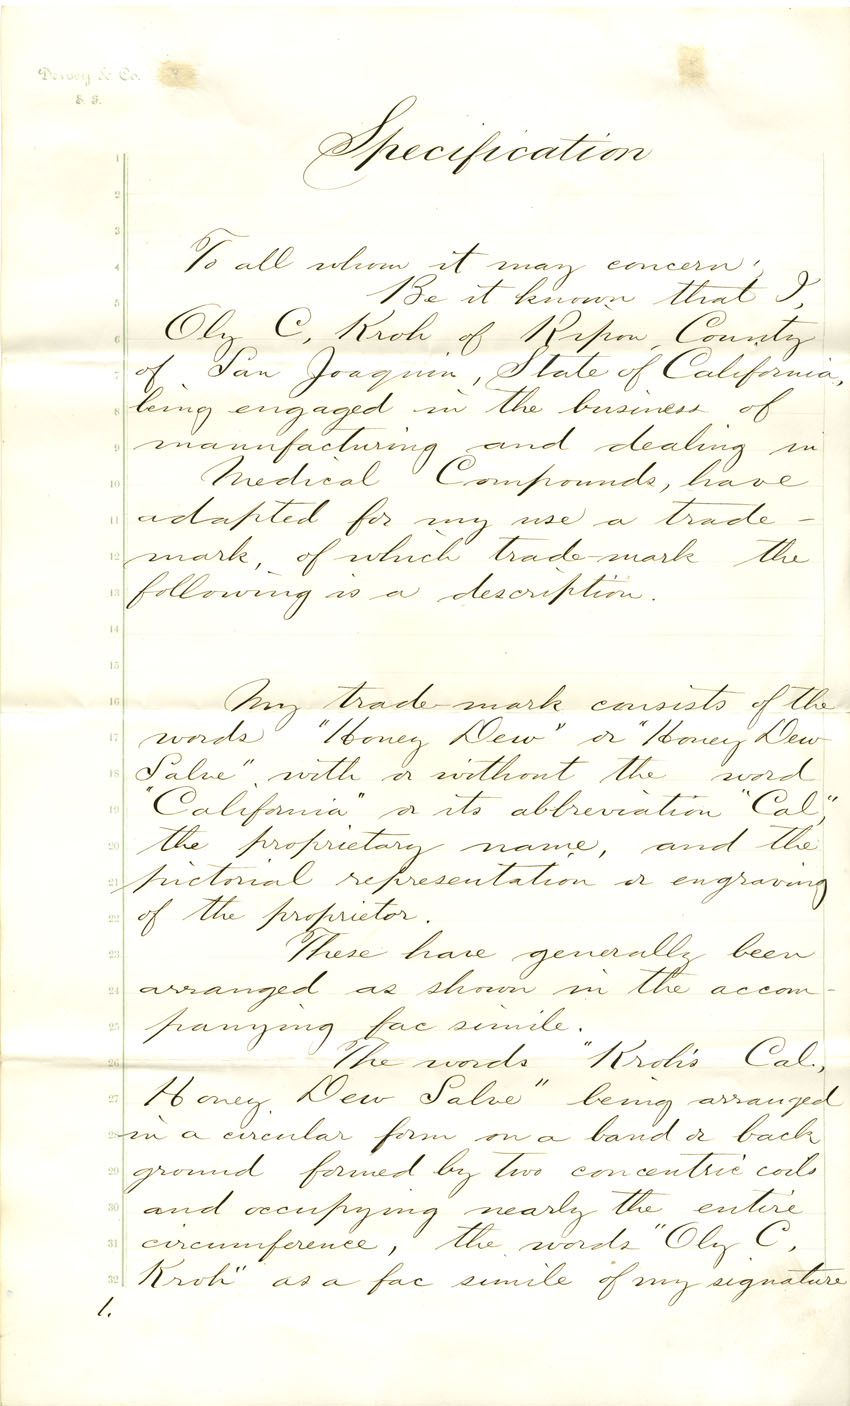 Dewey & Co.
S. F.
Specification
1
2
3
4 To all whom it may concern;
5 Be it known that I,
6 Oly C, Kroh of Ripon, County
7 of San Joaquin, State of California,
8 being engaged in the business of
9 manufacturing and dealing in
10 Medical Compounds, have
11 adapted for my use a trade-
12 mark, of which trade-mark the
13 following is a description.
14
15
16 My trade-mark consists of the
17 words "Honey Dew" or "Honey Dew
18 Salve" with or without the word
19 "California" or its abbreviation "Cal,"
20 the proprietary name, and the
21 pictorial representation or engraving
22 of the proprietor.
23 These have generally been
24 arranged as shown in the accom-
25 panying fac simile.
26 The words "Kroh's Cal.,
27 Honey Dew Salve" being arranged
28 in a circular form on a band or back
29 ground formed by two concentric coils
30 and occupying nearly the entire
31 circumference, the words "Oly C,
32 Kroh" as a fac simile of my signature
1.